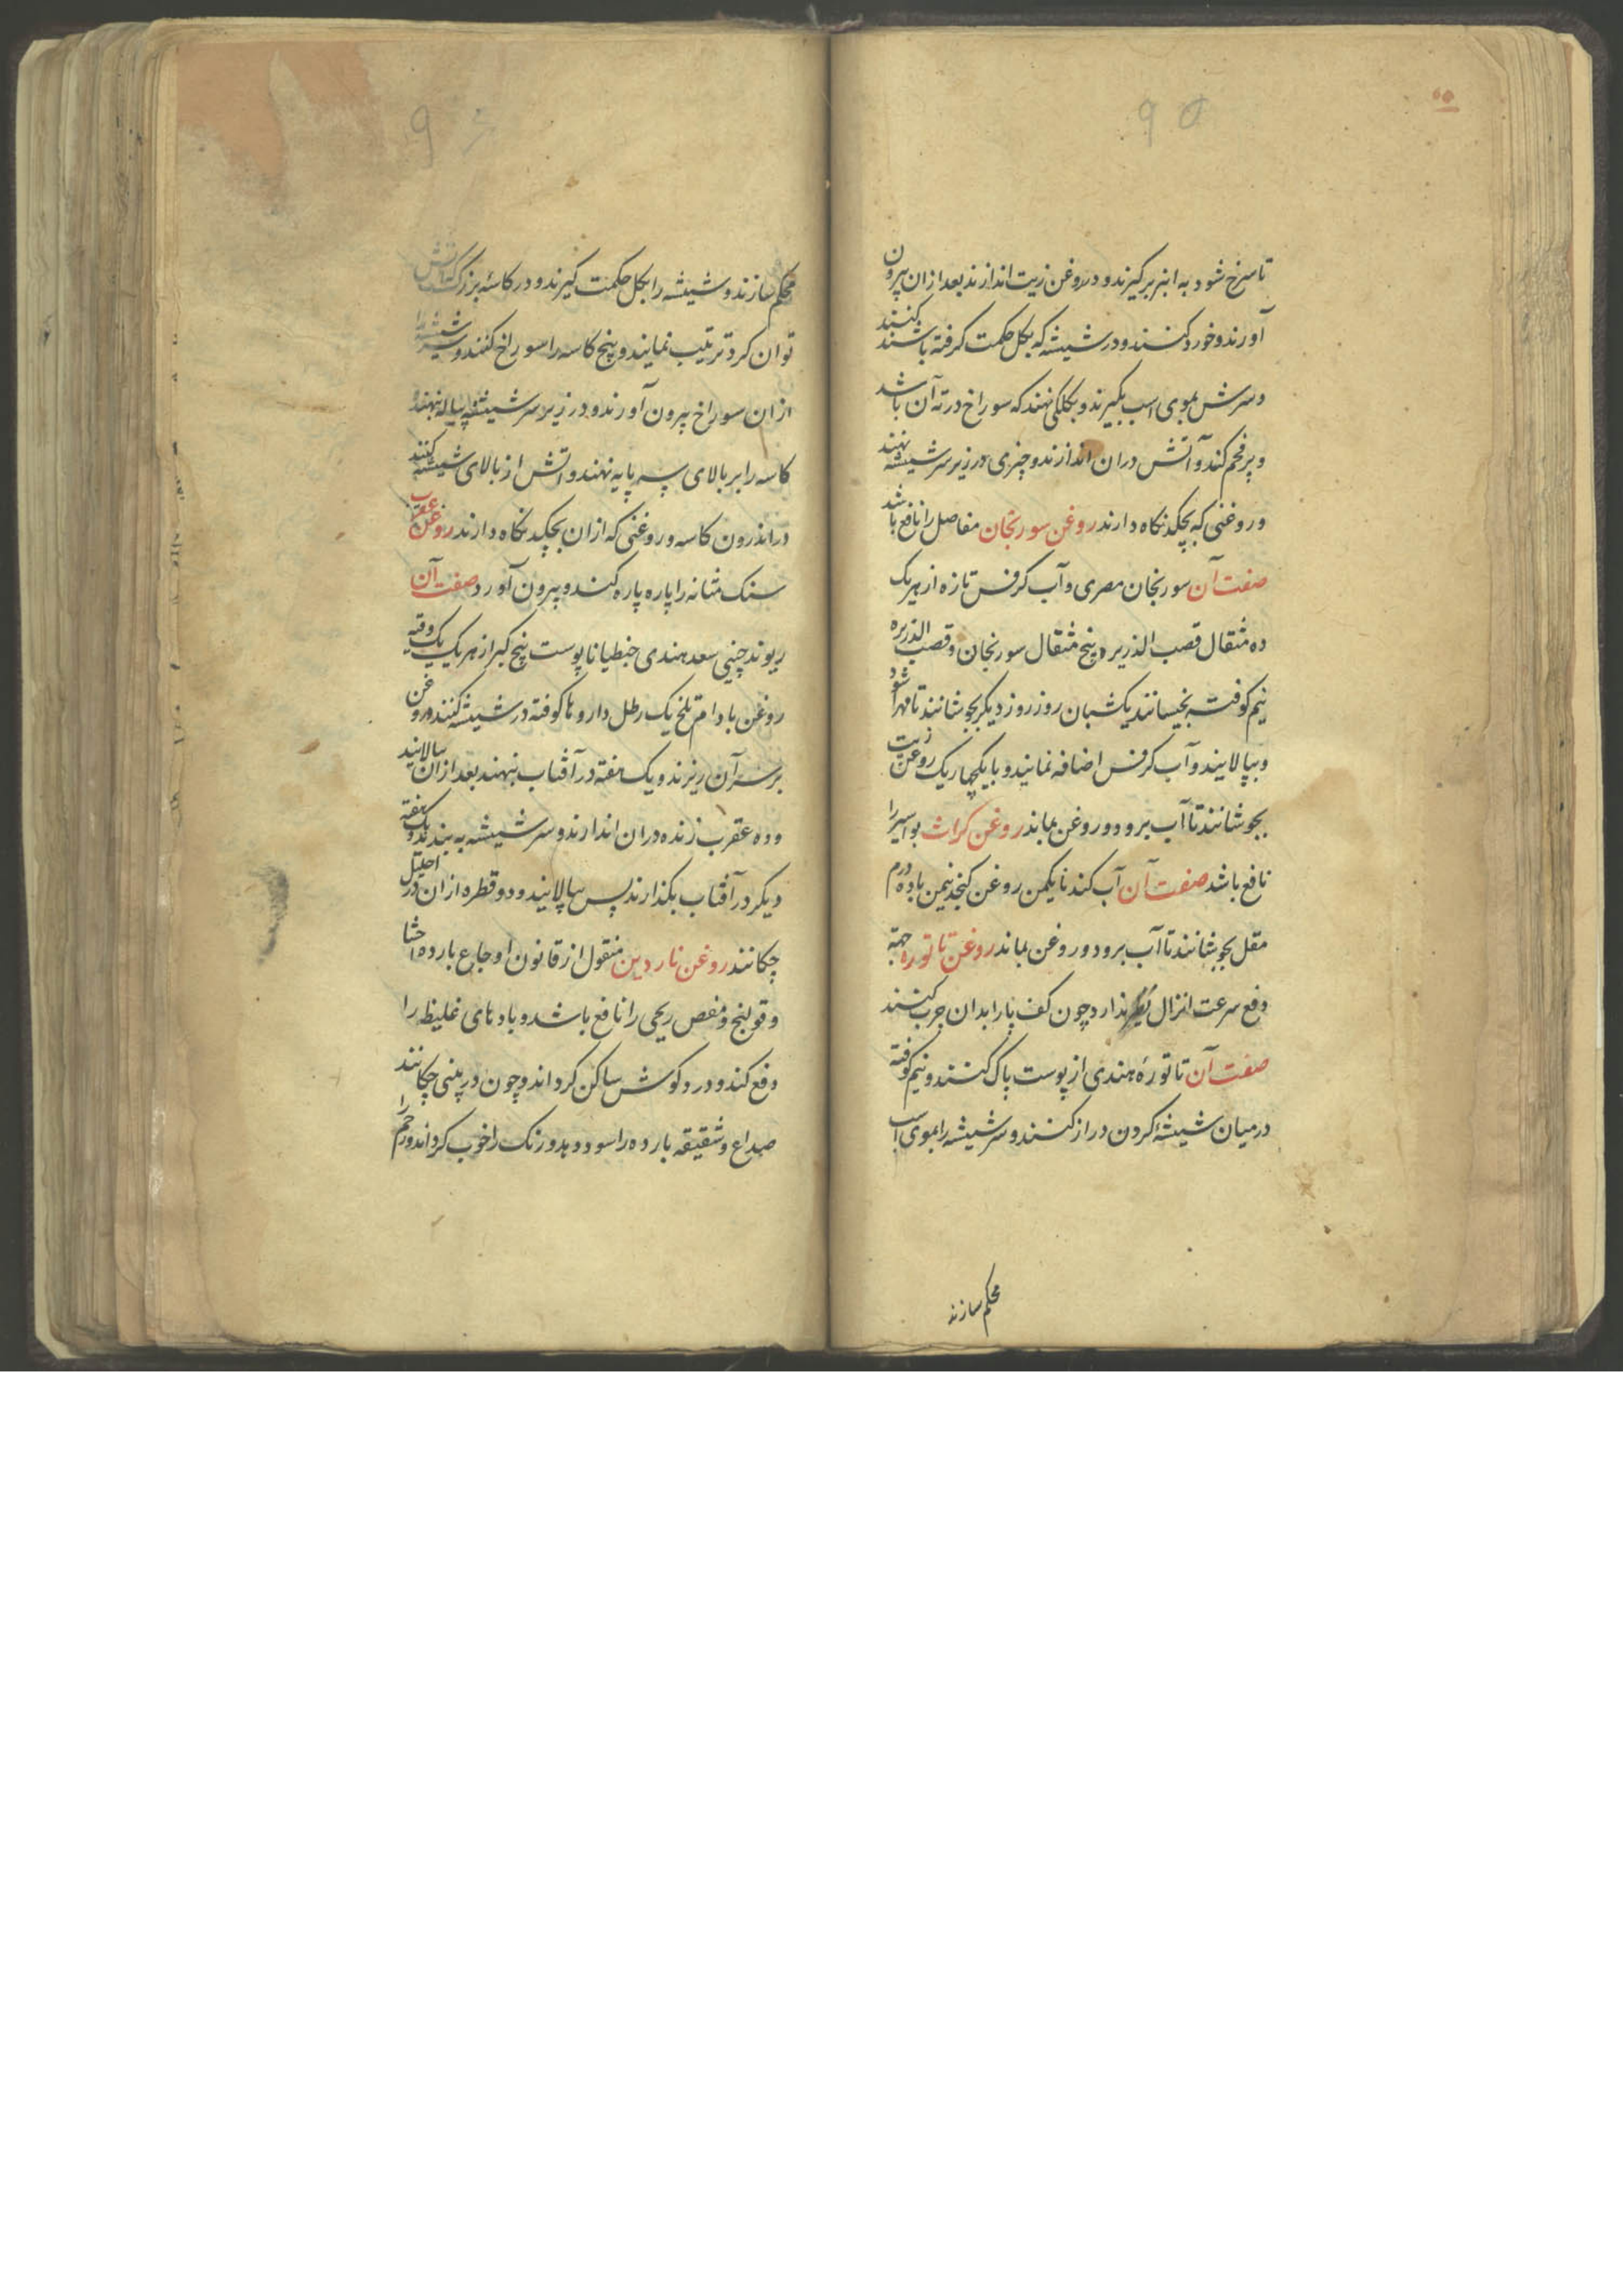 تا سرخ شود به انبر برگیرند و در روغن زیت اندازند بعد ازان بیرون
آورند و خورد کنند و در شیشه که بکل حکمت کرفته باشند کنند
و سرش بموی اسب بگیرند و بکلکی نهند که سوراخ در ته آن باشد
و پر فحم کند و آتش دران اندازند و چیزی در زیر سر شیشه نهند
و روغنی که بچکد نکاه دارند روغن سورنجان مفاصل را نافع باشد
صفت آن سورنجان مصری و آب کرفس تازه از هر یک
ده مثقال قصب الذریره پنج مثقال سورنجان و قصب الذریره
نیم کوفته بخیسانند یک شبان روز روز دیکر بجوشانند تا مهرا شود
و بپالایند و آب کرفس اضافه نمایند و با یکچهاریک روغن زیت
بجوشانند تا آب برود و روغن بماند روغن کراث بواسیر را
نافع باشد صفت آن آب کندنا یکمن روغن کنجد نیمن با ده درم
مقل بجوشانند تا آب برود و روغن بماند روغن تاتوره جهة
دفع سرعت انزال نظیر ندارد چون کف پا را بدان چرب کنند
صفت آن تاتورهٔ هندی از پوست پاک کنند و نیم کوفته
در میان شیشهٔ کردن دراز کنند و سر شیشه را بموی اسب
محکم سازند
محکم سازند و شیشه را بکل حکمت کیرند و در کاسهٔ بزرک که آتش
توان کرد ترتیب نمایند و بیخ کاسه را سوراخ کنند و سر شیشه را
ازان سوراخ بیرون آورند و در زیر سر شیشه پیاله نهند و
کاسه را بر بالای سه پایه نهند و اتش از بالای شیشه کنند
در اندرون کاسه و روغنی که ازان بچکد نکاه دارند روغن عقرب
سنک مثانه را پاره پاره کند و بیرون آورد صفت آن
ریوند چینی سعد هندی جنطیانا پوست بیخ کبر از هر یک یک وقیه
روغن بادام تلخ یک رطل داروها کوفته در شیشه کنند و روغن
بر سر آن ریزند و یک هفته در آفتاب بنهند بعد ازان بپالایند
و ده عقرب زنده دران اندازند و سر شیشه به بندند و یک هفته
دیکر در آفتاب بکذارند پس بپالایند و دو قطره ازان در احلیل
چکانند روغن ناردین منقول از قانون اوجاع بارده احشا
و قولنج و مغص ریحی را نافع باشد و بادهای غلیظ را
دفع کند و درد کوش ساکن کرداند و چون در بینی چکانند
صداع و شقیقه بارده را سود دهد و رنک را خوب کرداند و رحم را